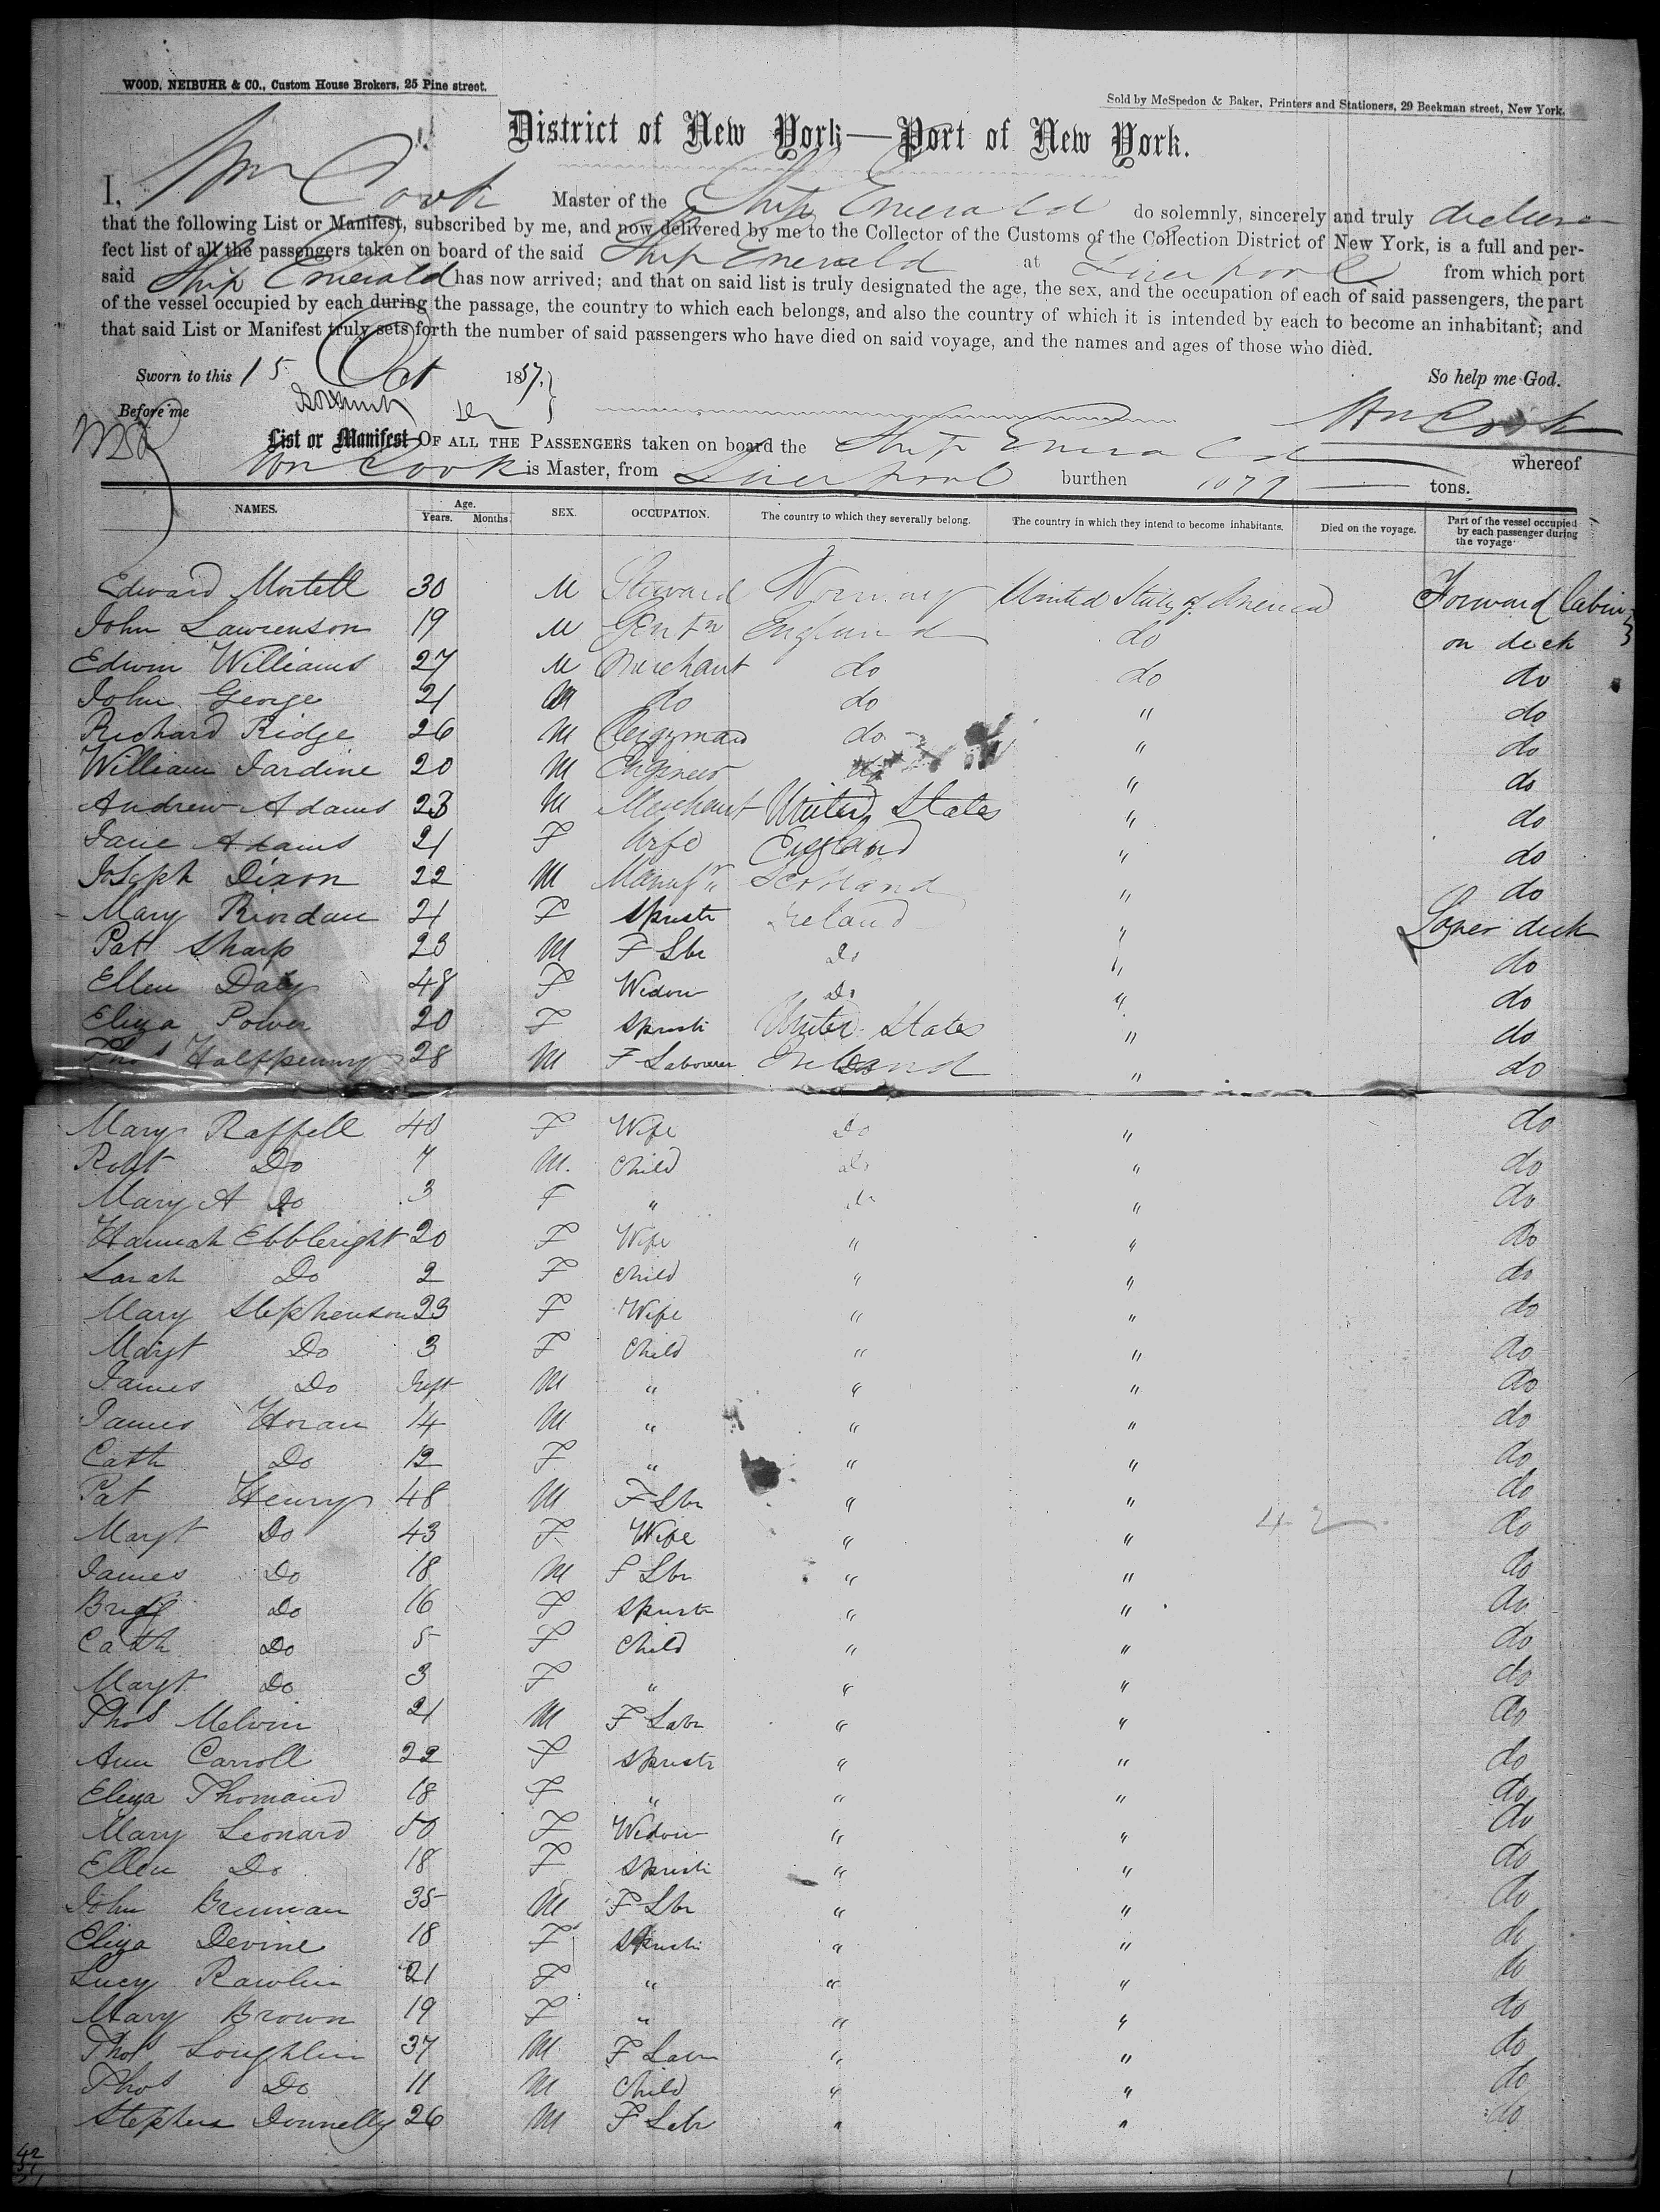 WOOD, NEIBUHR & CO., Custom House Brokers, 25 Pine street.
Sold by McSpedon & Baker, Printers and Stationers, 29 Beekman street, New York.
District of New York—Port of New York.
I, Wm Cook Master of the Ship Emerald do solemnly, sincerely and truly declare
that the following List or Manifest, subscribed by me, and now delivered by me to the Collector of the Customs of the Collection District of New York, is a full and per-
fect list of all the passengers taken on board of the said Ship Emerald at Liverpool from which port
said Ship Emerald has now arrived; and that on said list is truly designated the age, the sex, and the occupation of each of said passengers, the part
of the vessel occupied by each during the passage, the country to which each belongs, and also the country of which it is intended by each to become an inhabitant; and
that said List or Manifest truly sets forth the number of said passengers who have died on said voyage, and the names and ages of those who died.
Sworn to this 15 Oct 1857. So help me God.
Before me Wm Cook
List or Manifest OF ALL THE PASSENGERS taken on board the Ship Emerald whereof
Wm Cook is Master, from Liverpool burthen 1077 tons.
NAMES. Age. Years. Months. SEX. OCCUPATION. The country to which they severally belong. The country in which they intend to become inhabitants. Died on the voyage. Part of the vessel occupied by each passenger during the voyage
Edward Mortell 30 M Steward Norway United States of America Forward Cabin
John Lawrenson 19 M Gentn England do on deck
Edwin Williams 27 M Merchant do do do
John George 21 M do do " do
Richard Ridge 26 M Clergyman do " do
William Jardine 20 M Engineer do " do
Andrew Adams 23 M Merchant United States " do
Jane Adams 21 F Wife England " do
Joseph Dixon 22 M Manufr Scotland " do
Mary Riordan 21 F Spinstr Ireland " Lower deck
Pat Sharp 23 M F Lbr Do " do
Ellen Daly 48 F Widow Do " do
Eliza Power 20 F Spinstr United States " do
Thos Halfpenny 28 M F Labourer Ireland " do
Mary Raffell 40 F Wife Do " do
Robt Do 7 M. Child do " do
Mary A Do 3 F " do " do
Hannah Ebbleright 20 F Wife " " Do
Sarah Do 2 F Child " " do
Mary Stephenson 23 F Wife " " do
Margt Do 3 F Child " " do
James Do Inft M " " " do
James Horan 14 M " " " do
Cath Do 12 F " " " do
Pat Henry 48 M F Lbr " " do
Margt Do 43 F Wife " " 42 do
James Do 18 M F Lbr " " do
Bridgt Do 16 F Spinstr " " do
Cath Do 5 F Child " " do
Margt Do 3 F " " " do
Thos Melvin 21 M F Labr " " do
Ann Carroll 22 F Spinstr " " do
Eliza Thomand 18 F " " " do
Mary Leonard 50 F Widow " " do
Ellen Do 18 F Spinstr " " do
John Brennan 35 M F Lbr " " do
Eliza Devine 18 F Spinstr " " do
Lucy Rawlin 21 F " " " do
Mary Brown 19 F " " " do
Thos Loughlin 37 M F Labr " " do
Thos Do 11 M Child " " do
Stephen Donnelly 26 M F Labr " " do
42